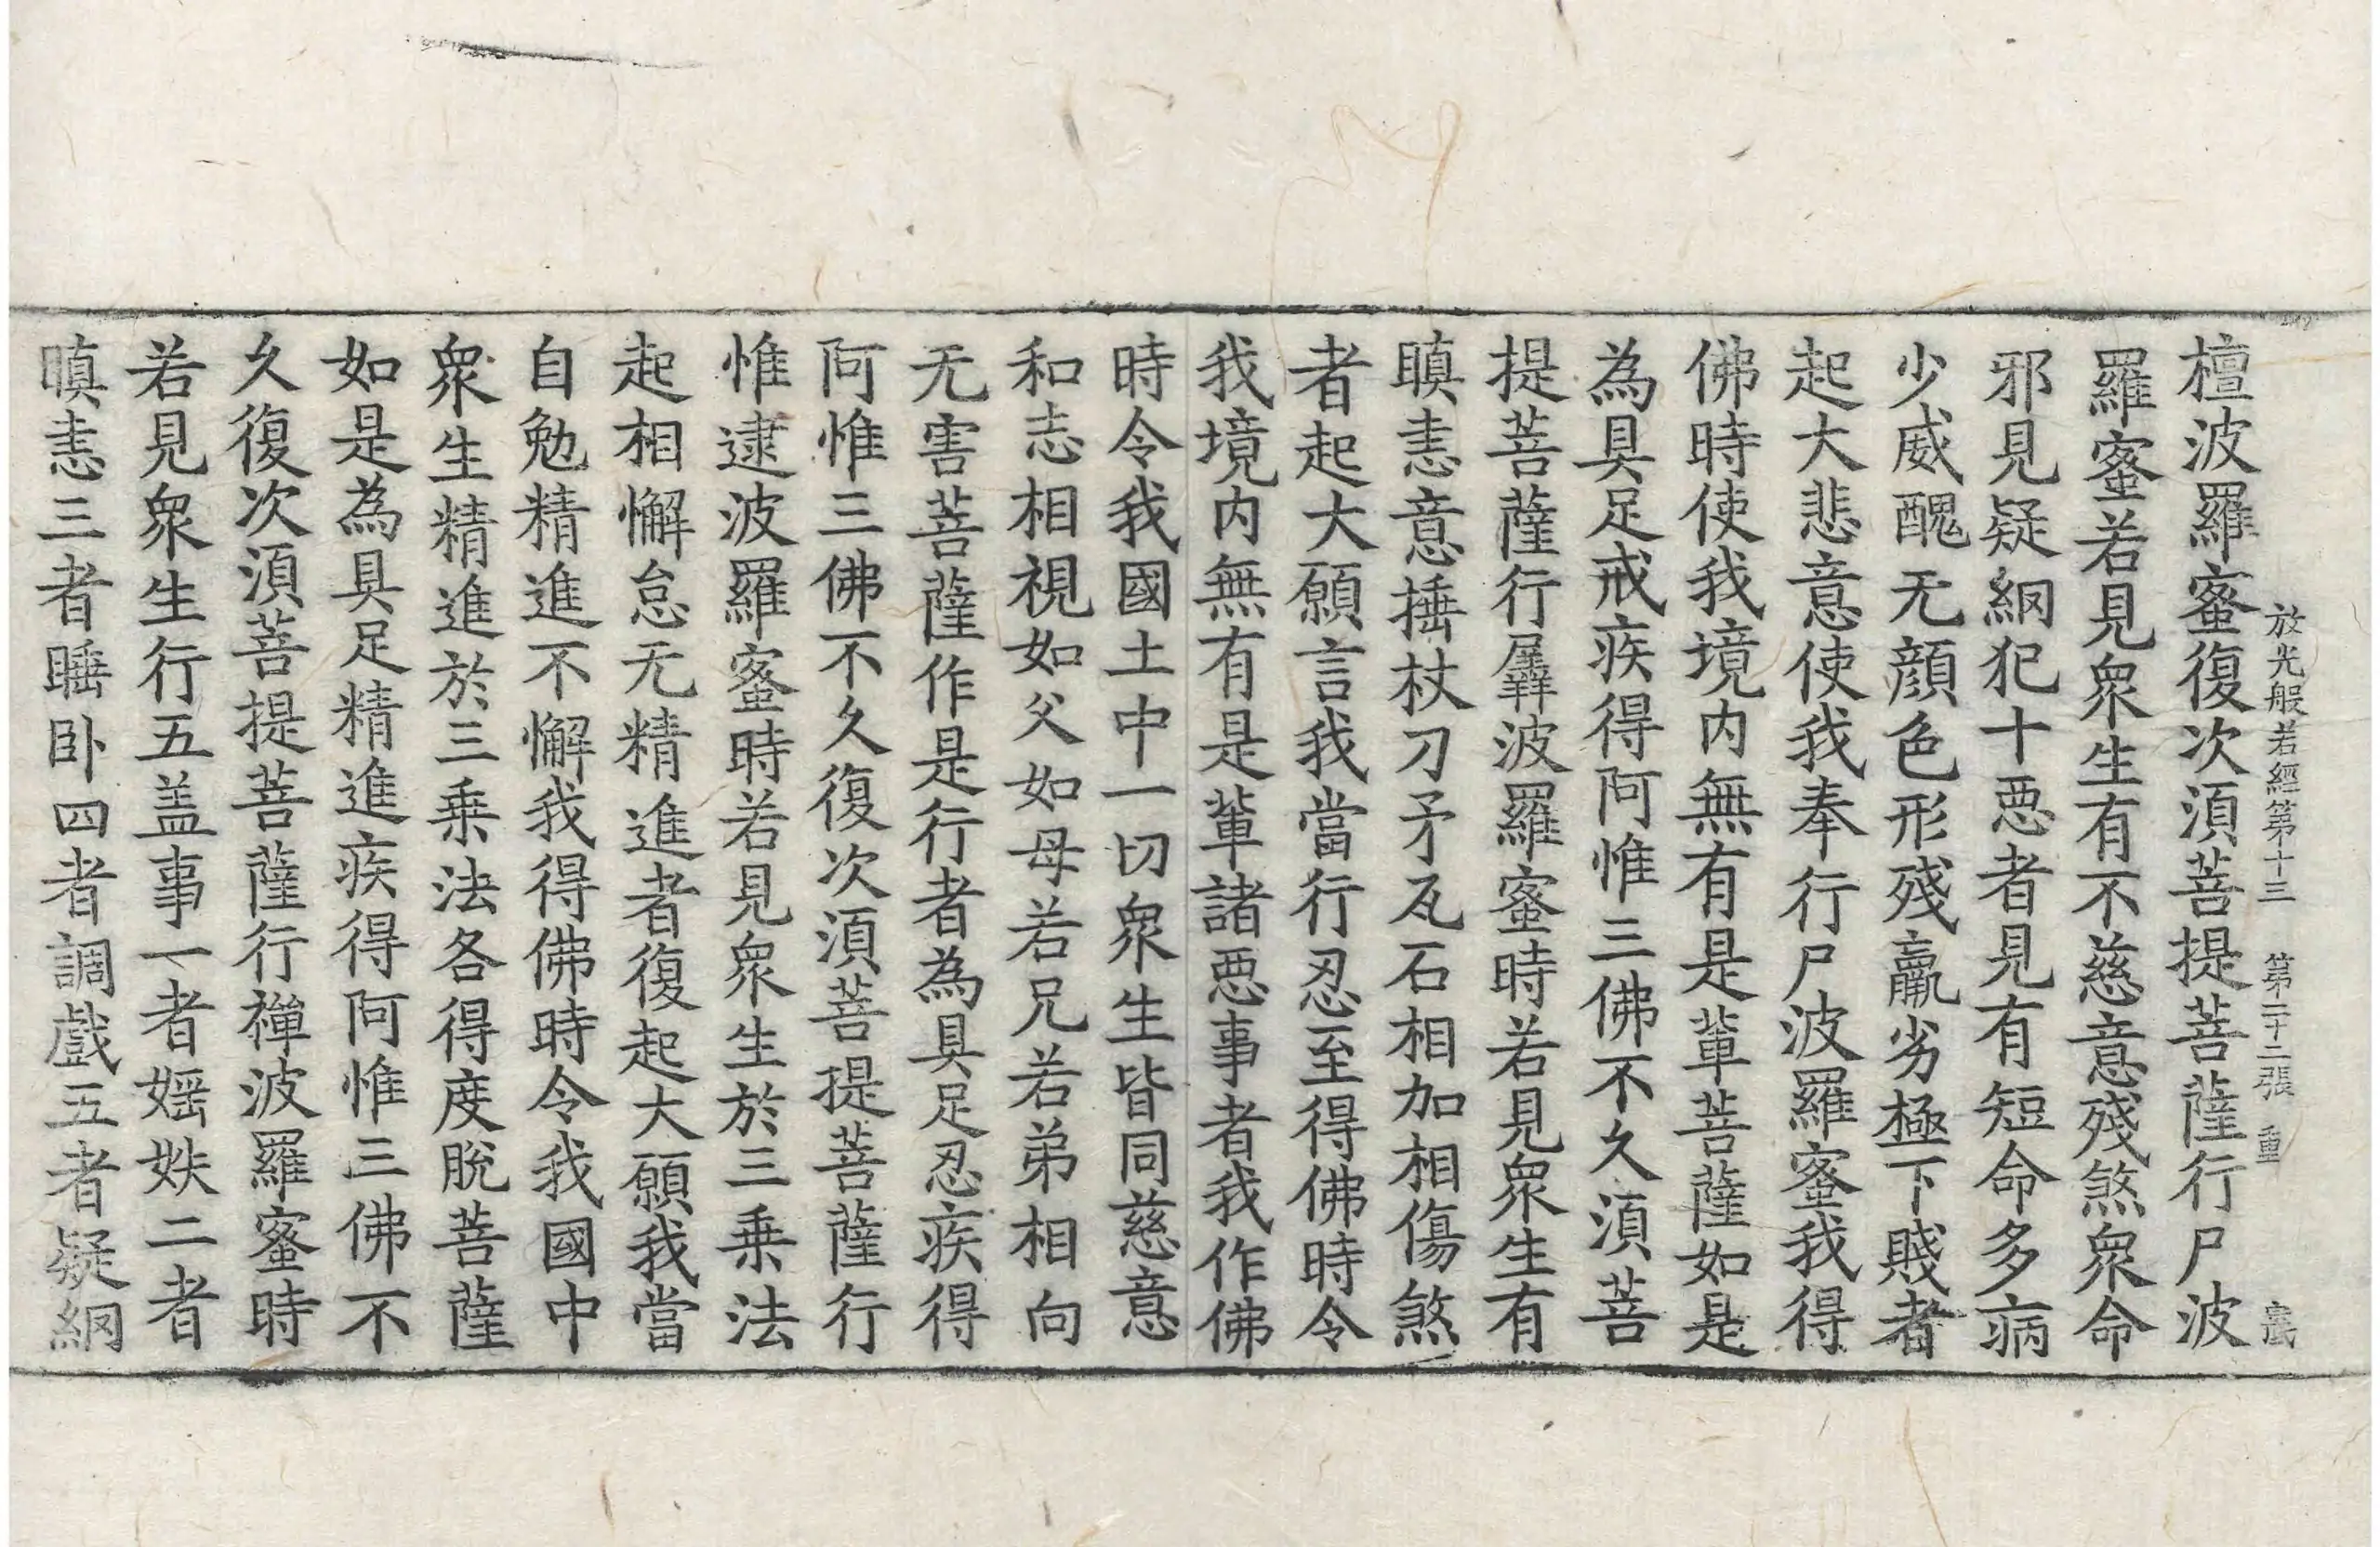 放光般若經第十三 第二十二張 重
檀波羅蜜復次湏菩提菩薩行尸波
羅蜜若見衆生有不慈意殘煞衆命
邪見疑網犯十惡者見有短命多病
少威醜无顔色形殘羸劣極下賤者
起大悲意使我奉行尸波羅蜜我得
佛時使我境内無有是輩菩薩如是
為具足戒疾得阿惟三佛不久湏菩
提菩薩行羼波羅蜜時若見衆生有
瞋恚意捶杖刀矛瓦石相加相傷煞
者起大願言我當行忍至得佛時令
我境内無有是輩諸惡事者我作佛
時令我國土中一切衆生皆同慈意
和志相視如父如母若兄若弟相向
无害菩薩作是行者為具足忍疾得
阿惟三佛不久復次湏菩提菩薩行
惟逮波羅蜜時若見衆生於三乗法
起相懈怠无精進者復起大願我當
自勉精進不懈我得佛時令我國中
衆生精進於三乗法各得度脫菩薩
如是為具足精進疾得阿惟三佛不
久復次湏菩提菩薩行禪波羅蜜時
若見衆生行五盖事一者婬妷二者
瞋恚三者睡卧四者調戲五者疑網